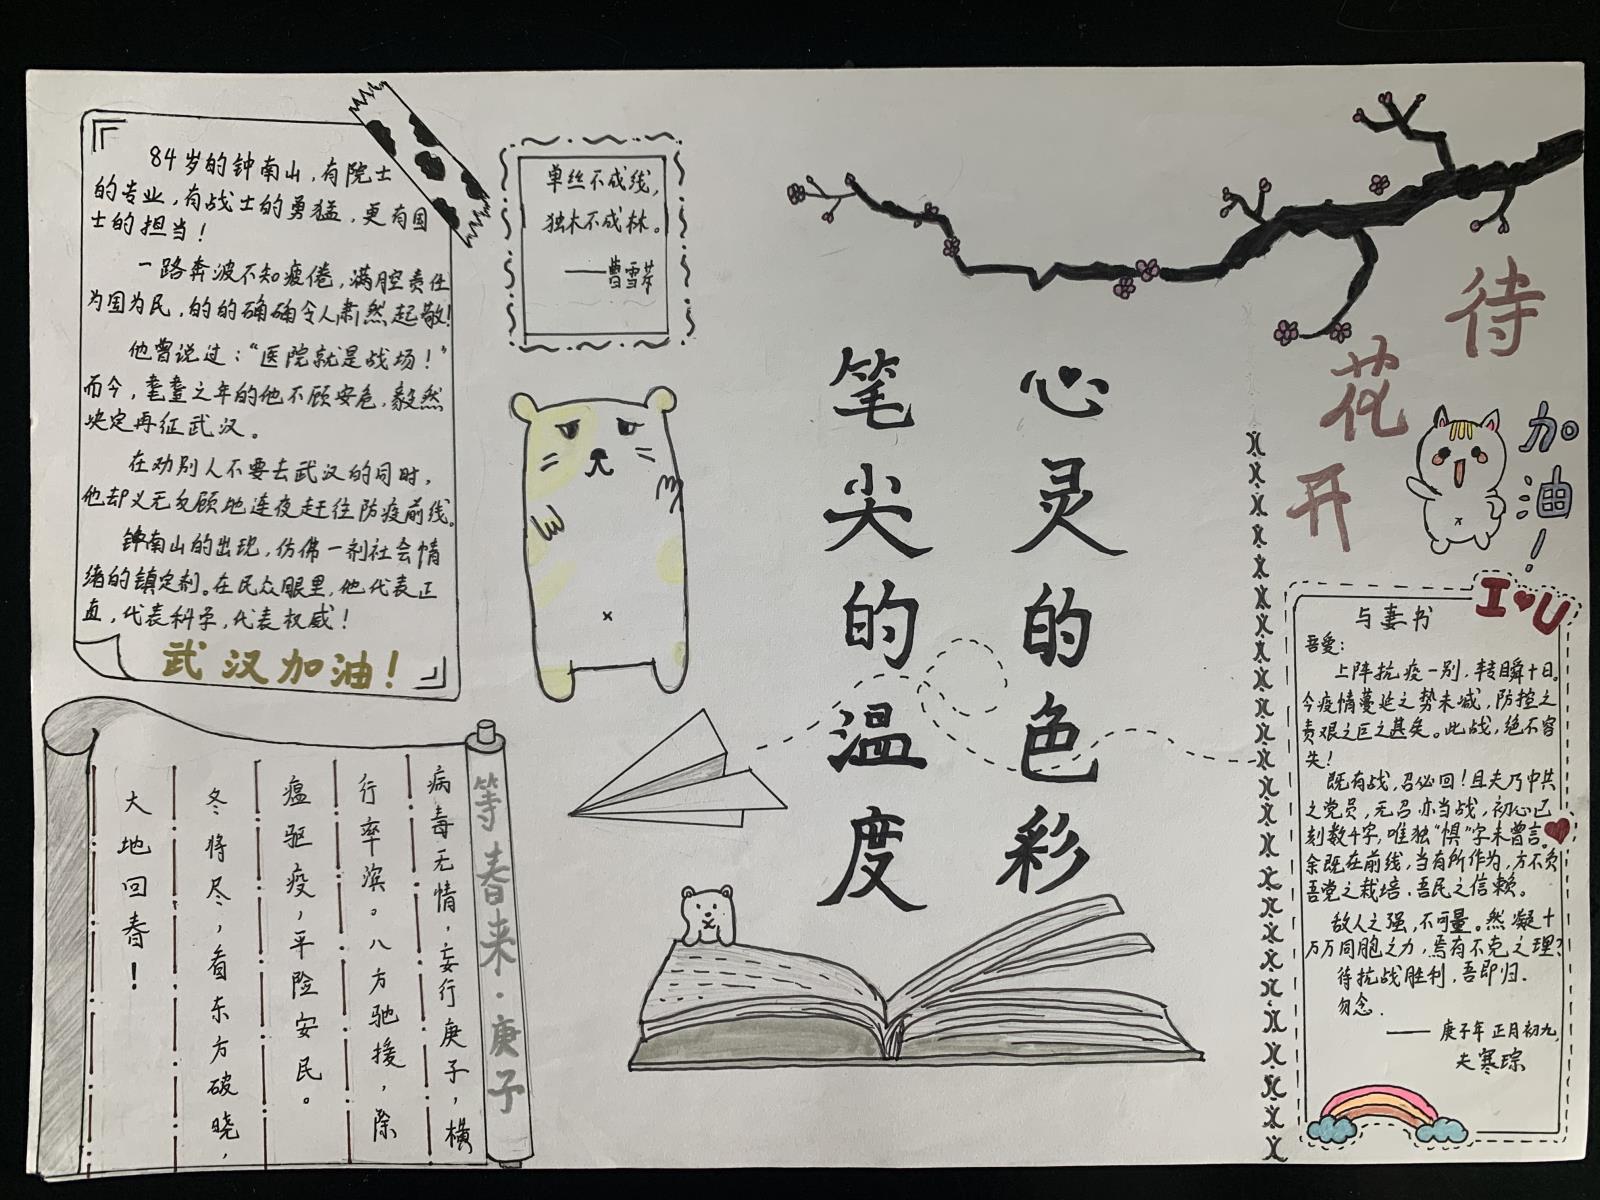 84岁的钟南山，有院士
的专业，有战士的勇猛，更有国
士的担当！
一路奔波不知疲倦，满腔责任
为国为民，的的确确令人肃然起敬！
他曾说过：“医院就是战场！”
而今，耄耋之年的他不顾安危，毅然
决定再征武汉。
在劝别人不要去武汉的同时，
他却义无反顾地连夜赶往防疫前线。
钟南山的出现，仿佛一剂社会情
绪的镇定剂。在民众眼里，他代表正
直，代表科学，代表权威！
武汉加油！
单丝不成线，
独木不成林。
——曹雪芹
等春来·庚子
病毒无情，妄行庚子，横
行率滨。八方驰援，除
瘟驱疫，平险安民。
冬将尽，看东方破晓，
大地回春！
心灵的色彩
笔尖的温度
待
花
开
加油！
I♥U
与妻书
吾爱：
上阵抗疫一别，转瞬十日。
今疫情蔓延之势未减，防控之
责艰之巨之甚矣。此战，绝不容
失！
既有战，召必回！且夫乃中共
之党员，无召亦当战，初心已
刻数十字，唯独“惧”字未曾言。
余既在前线，当有所作为，方不负
吾党之栽培、吾民之信赖。
敌人之强，不可量。然凝十
万万同胞之力，焉有不克之理？
待抗战胜利，吾即归．
勿念．
——庚子年 正月初九，
夫寒琮